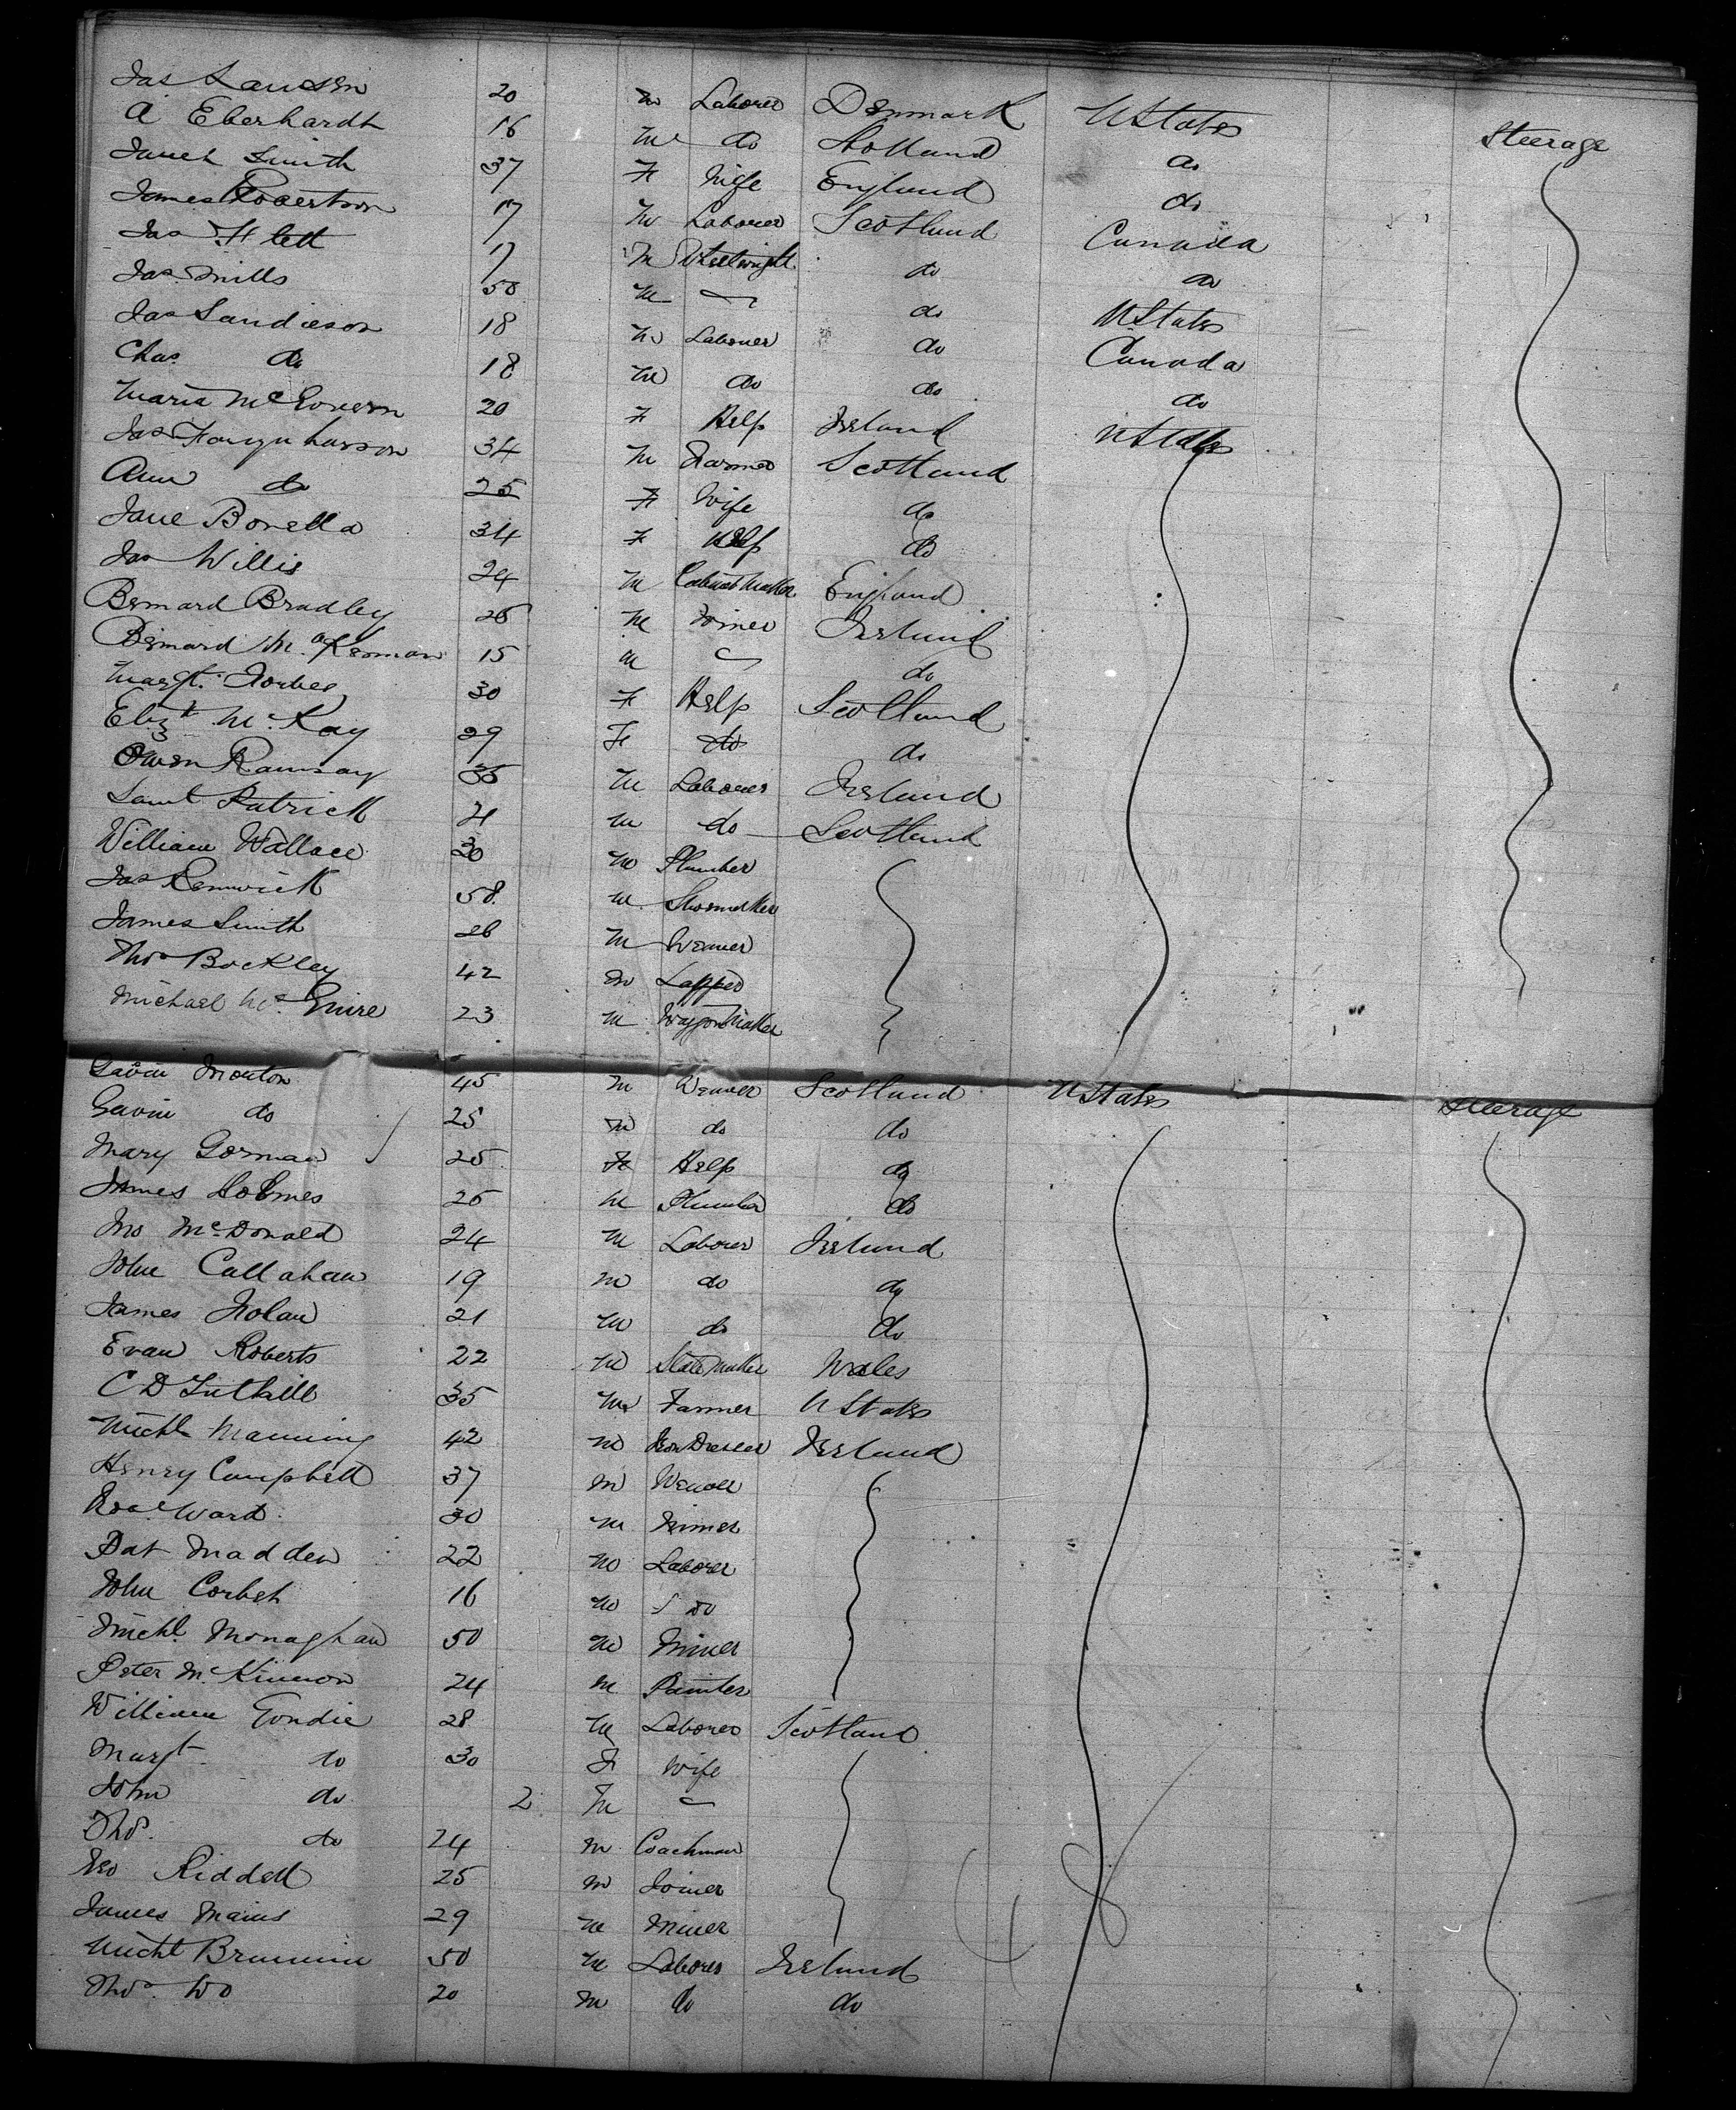 Jas Lausen 20 M Laborer Denmark U States Steerage
A Eberhardt 16 M do Holland do
Janet Smith 37 F Wife England do
James Robertson 17 M Laborer Scotland Canada
Jas Flett 17 M Wheelwright do do
Jas Mills 50 M — do U States
Jas Sandieson 18 M Laborer do Canada
Chas. do 18 M do do do
Maria McGovern 20 F Help Ireland U States
Jas Farquharson 34 M Farmer Scotland
Ann do 25 F Wife do
Jane Bonella 34 F Help do
Jas Willis 24 M Cabinet Maker England
Bernard Bradley 25 M Joiner Ireland
Bernard McKernan 15 M — do
Margt. Forbes 30 F Help Scotland
Elizt McKay 29 F do do
Owen Ramsay 35 M Laborer Ireland
Saml Patrick 21 M do Scotland
William Wallace 30 M Plumber
Jas Renwick 58 M Shoemaker
James Smith 26 M Weaver
Thos Bockley 42 M Lapper
Michael McGuire 23 M Waggon Maker
Gavin Morton 45 M Weaver Scotland U States Steerage
Gavin do 25 M do do
Mary Gorman 25 F Help do
James Holmes 25 M Plumber do
Jno McDonald 24 M Laborer Ireland
John Callahan 19 M do do
James Nolan 21 M do do
Evan Roberts 22 M Slate Maker Wales
C D Tuthill 35 M Farmer U States
Michl Manning 42 M Iron Dresser Ireland
Henry Campbell 37 M Weaver
Ward 30 M
Pat Madden 22 M Laborer
John Corbet 16 M do
Michl. Monaghan 50 M Miner
Peter McKinnon 24 M Painter
William Goudie 28 M Laborer Scotland
Margt do 30 F Wife
John do 2 M —
Thos. do 24 M Coachman
Geo Riddell 25 M Joiner
James Mains 29 M Miner
Michl 50 M Laborer Ireland
Thos. Do 20 M do do